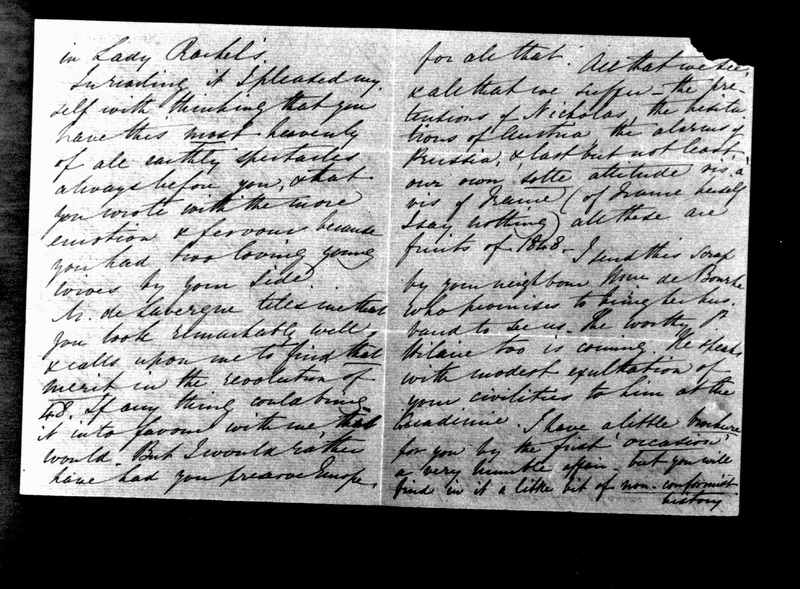 in Lady Rachel's.
In reading it I pleased my
self with thinking that you
have this most heavenly
of all earthly spectacles
always before you, & that
you wrote with the more
emotion & fervour because
you had two loving young
wives by your side
M. de Lavergne tells me that
you look remarkably well,
& calls upon me to find that
merit in the revolution of
48. If any thing could bring
it into favour with me, that
would. But I would rather
have had you preserve Europe,
for all that. All that we see,
& all that we suffer – the pre-
tensions of Nicholas, the hesita
tions of Austria the alarms of
Prussia, & last but not least,
our own sotte attitude vis à
vis of France (of France herself
I say nothing) all these are
fruits of 1848 – I send this scrap
by your neighbour Mme de Bourke
who promises to bring her hus-
band to see us. The worthy St
Hilaire too is coming. He speaks
with modest exultation of
your civilities to him at the
Academie. I have a little brochure
for you by the first occasion,
a very humble affair – but you will
find in it a little bit of non-conformist
history